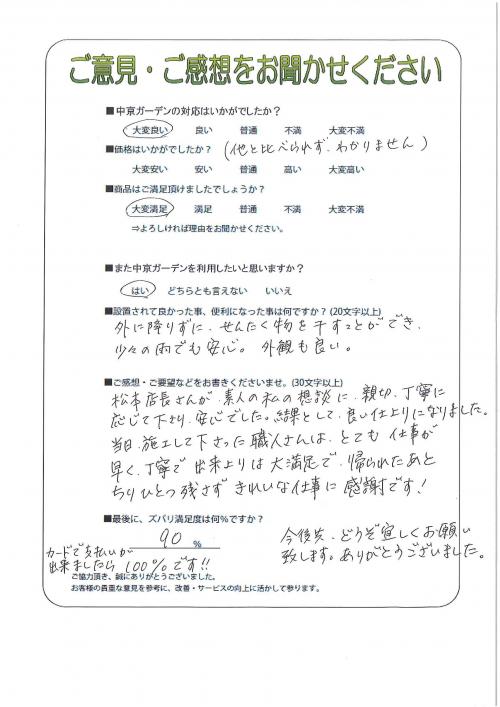 ご意見・ご感想をお聞かせください
■中京ガーデンの対応はいかがでしたか？
大変良い 良い 普通 不満 大変不満
■価格はいかがでしたか？ (他と比べられず、わかりません)
大変安い 安い 普通 高い 大変高い
■商品はご満足頂けましたでしょうか？
大変満足 満足 普通 不満 大変不満
⇒よろしければ理由をお聞かせください。
■また中京ガーデンを利用したいと思いますか？
はい どちらとも言えない いいえ
■設置されて良かった事、便利になった事は何ですか？(20文字以上)
外に降りずに、せんたく物を干すことができ、
少々の雨でも安心。外観も良い。
■ご感想・ご要望などをお書きくださいませ。(30文字以上)
松本店長さんが、素人の私の相談に、親切、丁寧に
応じて下さり、安心でした。結果として、良い仕上りになりました。
当日、施工して下さった職人さんは、とても仕事が
早く、丁寧で出来上りは大満足で、帰られたあと
ちりひとつ残さずきれいな仕事に感謝です！
■最後に、ズバリ満足度は何％ですか？
90 %
カードで支払いが
出来ましたら100%です!!
今後共、どうぞ宜しくお願い
致します。ありがとうございました。
ご協力頂き、誠にありがとうございました。
お客様の貴重な意見を参考に、改善・サービスの向上に活かして参ります。